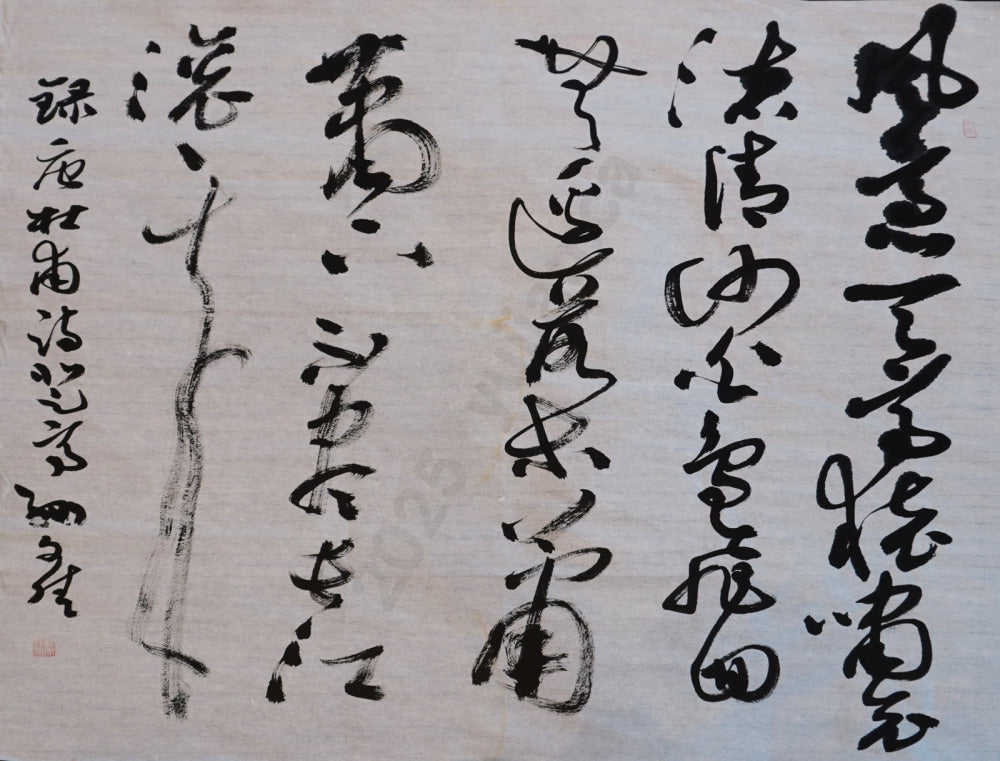 風急天高猿嘯哀
渚清沙白鳥飛回
無邊落木蕭
蕭下不盡長江
滾滾来
錄唐杜甫詩登高